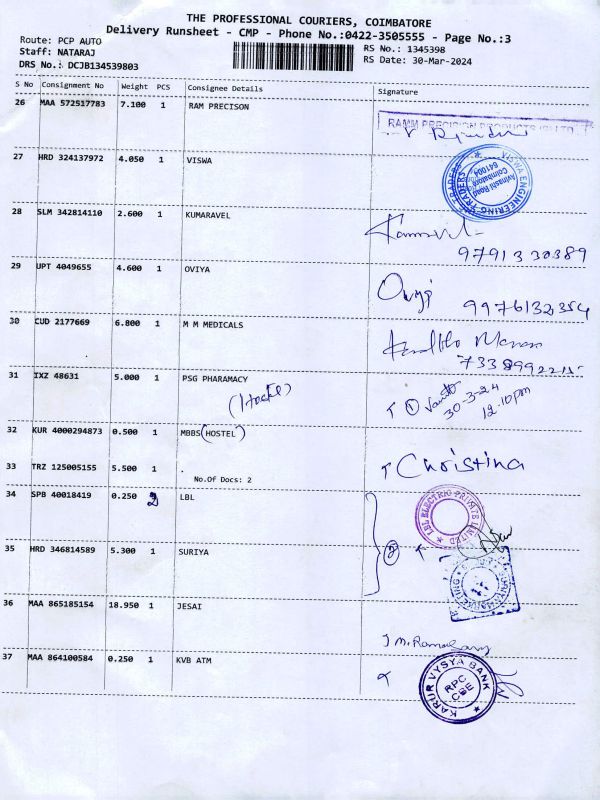 THE PROFESSIONAL COURIERS, COIMBATORE
Delivery Runsheet - CMP - Phone No.:0422-3505555 - Page No.:3
Route: PCP AUTO
Staff: NATARAJ
DRS No.: DCJB134539803
RS No.: 1345398
RS Date: 30-Mar-2024
S No Consignment No Weight PCS Consignee Details Signature
26 MAA 572517783 7.100 1 RAM PRECISON
RAMM PRECISION PRODUCTS (I) LTD
27 HRD 324137972 4.050 1 VISWA
VISWA ENGINEERING TRADERS
Avinashi Road, Coimbatore 641004
28 SLM 342814110 2.600 1 KUMARAVEL
9791330389
29 UPT 4049655 4.600 1 OVIYA
9976132354
30 CUD 2177669 6.800 1 M M MEDICALS
31 IXZ 48631 5.000 1 PSG PHARAMACY
(Hostel)
① 30-3-24
12.10pm
32 KUR 4000294873 0.500 1 MBBS(HOSTEL)
33 TRZ 125005155 5.500 1 .
No.Of Docs: 2
Christina
34 SPB 40018419 0.250 2 LBL
LBL ELECTRIC PRIVATE LIMITED
②
35 HRD 346814589 5.300 1 SURIYA
36 MAA 865185154 18.950 1 JESAI
37 MAA 864100584 0.250 1 KVB ATM
KARUR VYSYA BANK
RPC
CBE